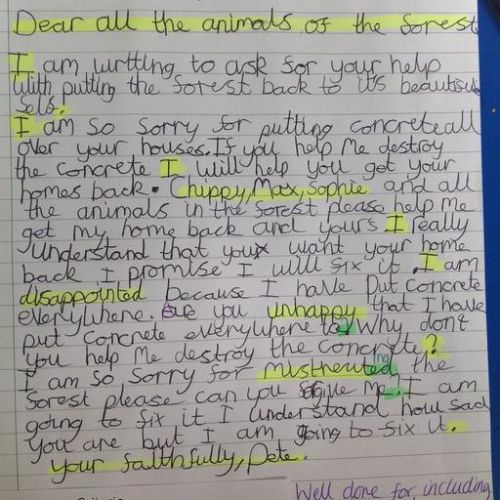 Dear all the animals of the forest
I am writting to ask for your help
with putting the forest back to it's beautiful
self.
I am so sorry for putting concrete all
over your houses. If you help me destroy
the concrete I will help you get your
homes back. Chippy, Max, Sophie and all
the animals in the forest please help me
get my home back and yours I really
understand that you want your home
back I promise I will fix it. I am
disappointed because I have put concrete
everywhere. Are you unhappy that I have
put concrete everywhere to? Why don't
you help me destroy the concrete?
I am so sorry for mistreated the
forest please can you me. I am
going to fix it I understand how sad
you are but I am going to fix it.
your faithfully, Pete.
Well done for including